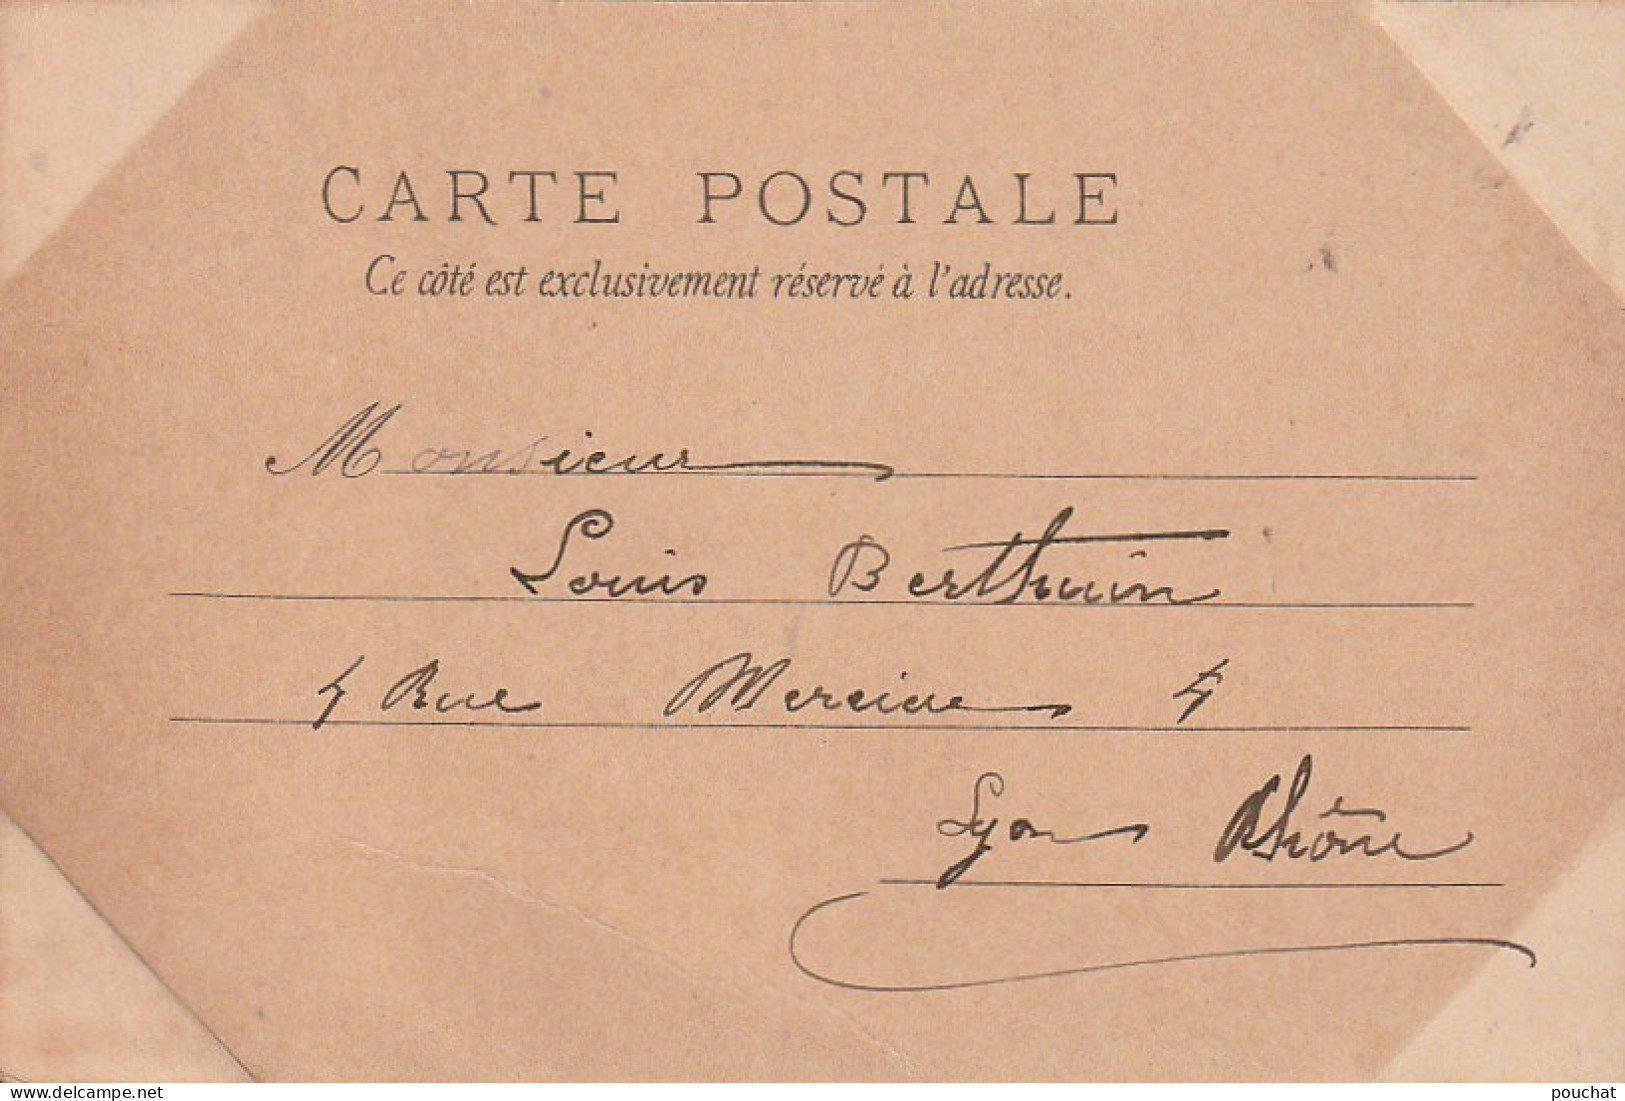 CARTE POSTALE
Ce côté est exclusivement réservé à l'adresse.
Monsieur
Louis Berthuin
4 Rue Merciere 4
Lyon Rhône
www.delcampe.net
pouchat